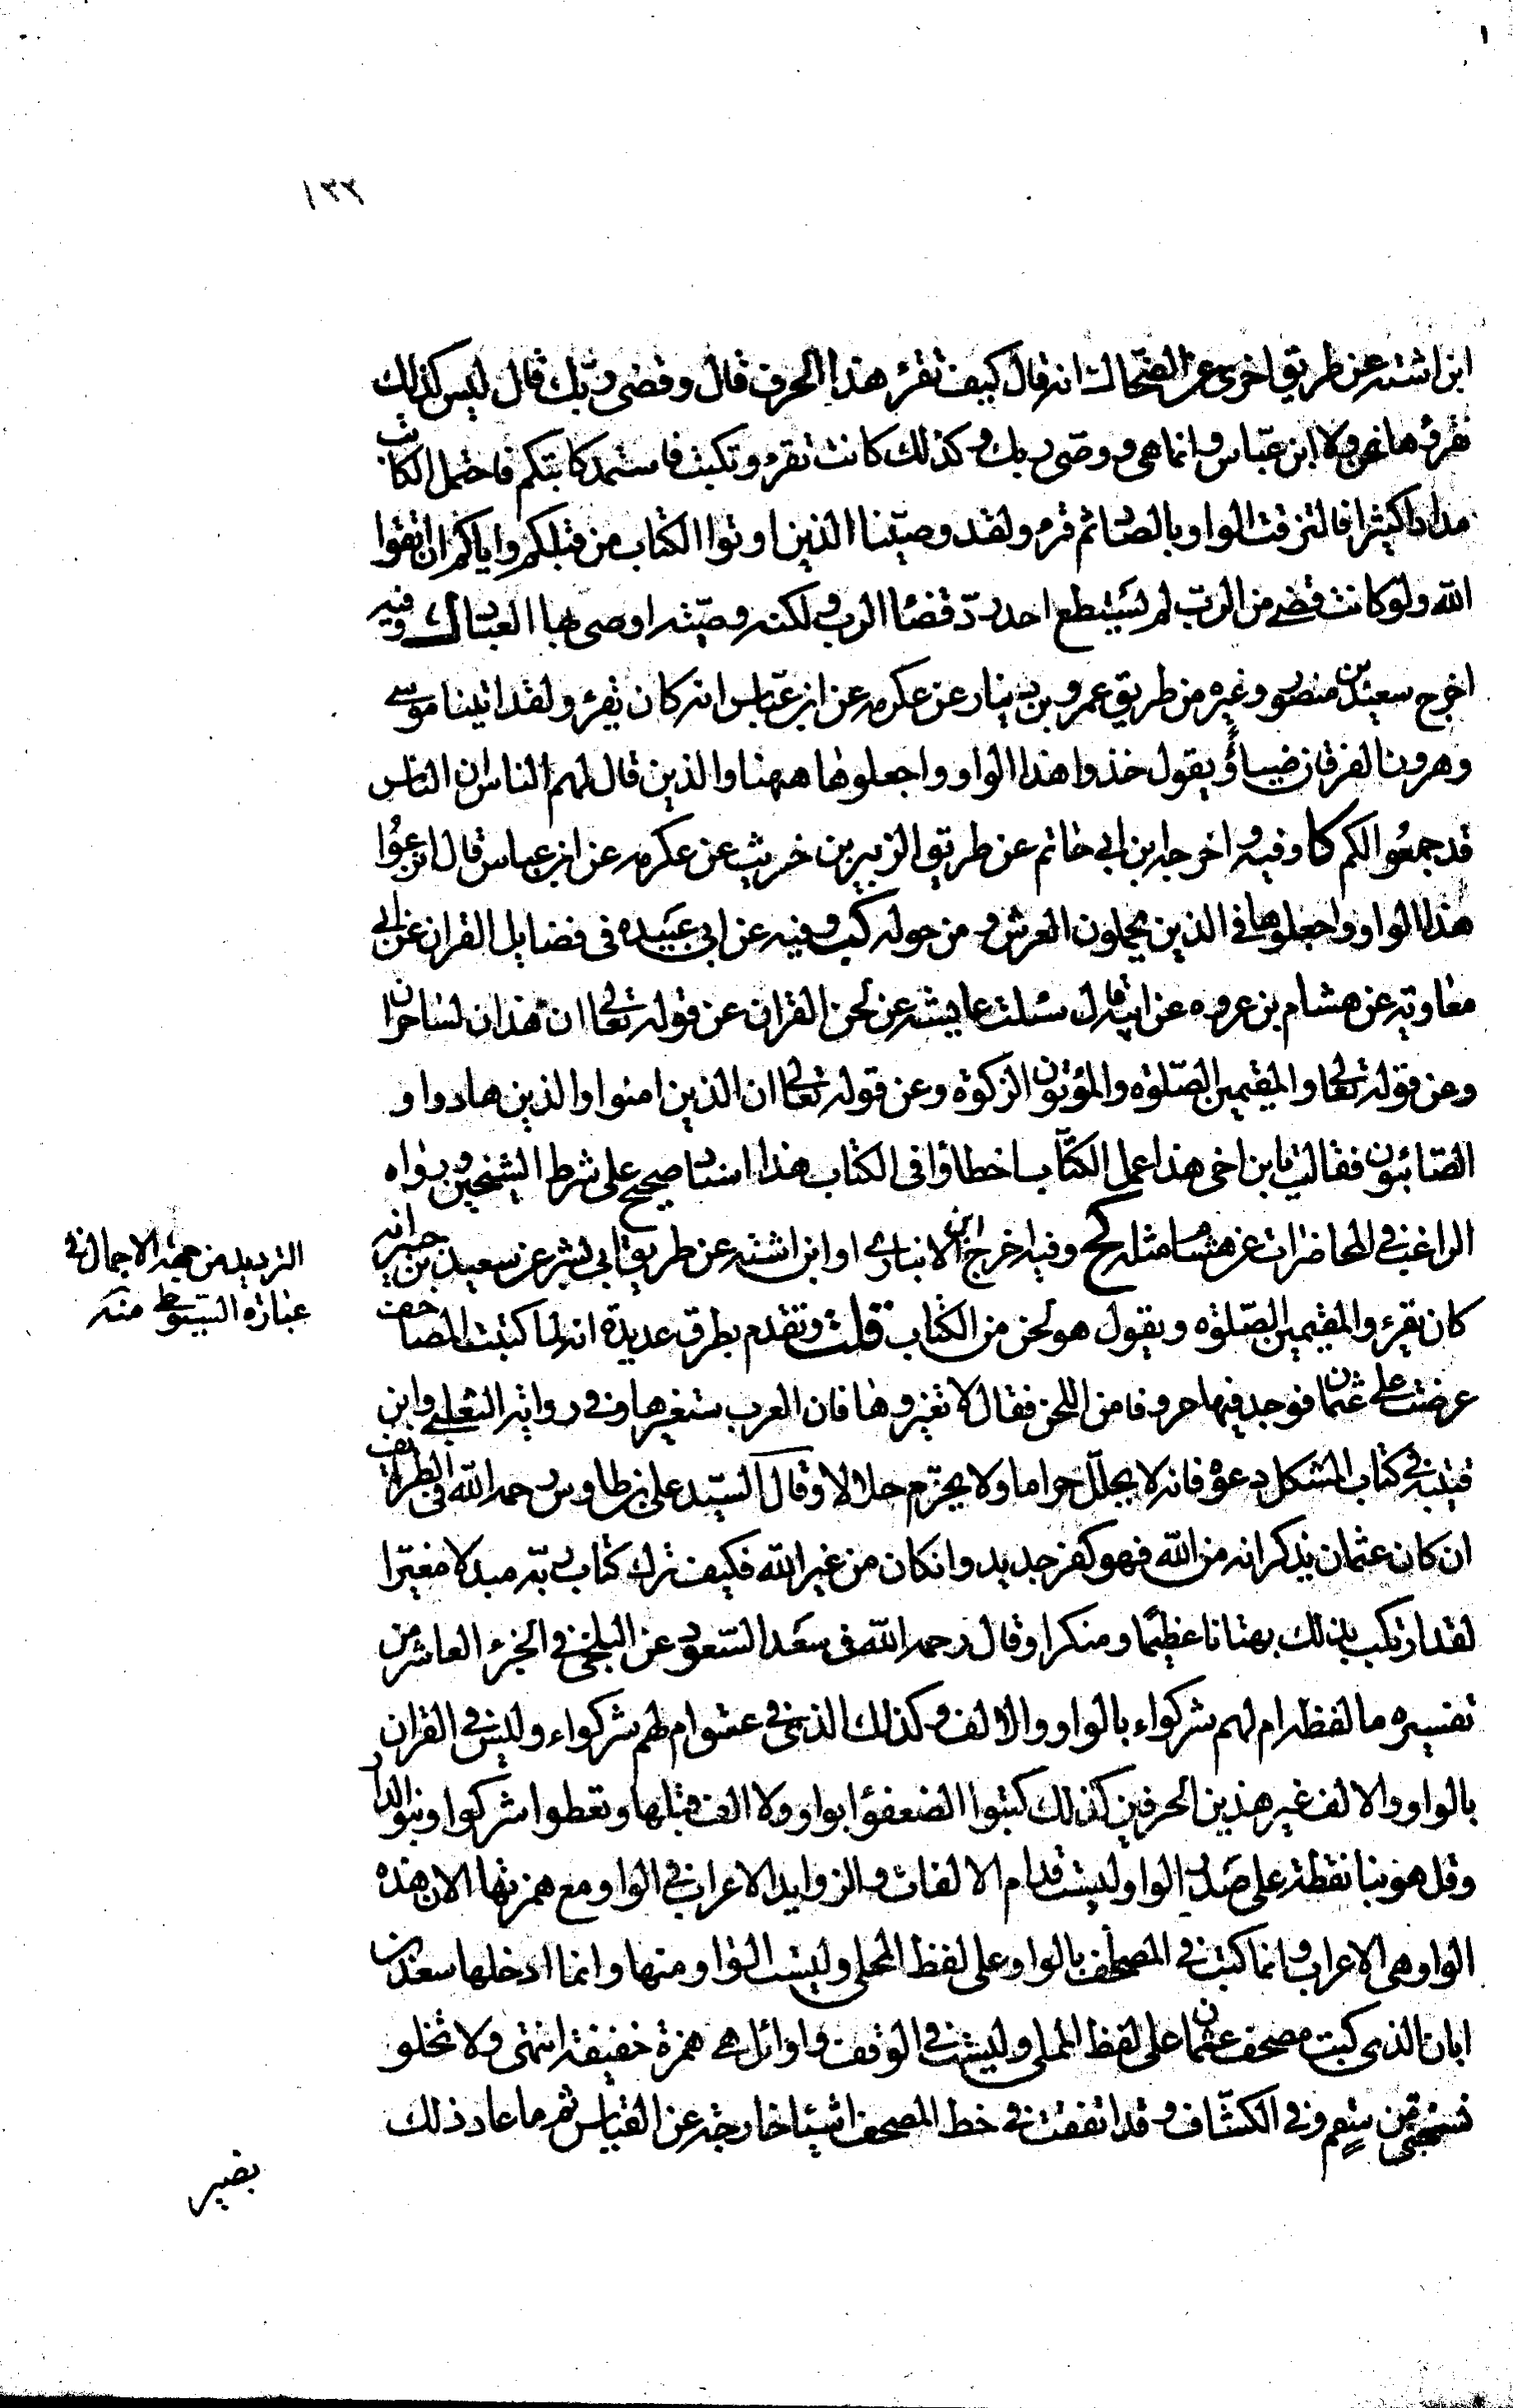 ١٣٣
ابن اشته عن طريق اخرى عن الضحاك انه قال كيف تقرء هذا الحرف قال وقضى ربك قال ليس كذلك
نقرؤها نحن ولا ابن عباس وانما هى ووصى ربك وكذلك كانت تقرء وتكتب فاستمد كاتبكم فاحتمل الكاتب
مدادا كثيرا فالتزقت الواو بالصاد ثم قرء ولقد وصينا الذين اوتوا الكتاب من قبلكم واياكم ان اتقوا
الله ولو كانت قضى من الرب لم يستطع احد رد قضا الرب ولكنه وصيته اوصى بها العباد ك وفيه
اخرج سعيد بن منصور وغيره من طريق عمرو بن دينار عن عكرمه عن ابن عباس انه كان يقرء ولقد اتينا موسى
وهرون الفرقان ضياء ويقول خذوا هذا الواو واجعلوها ههنا والذين قال لهم الناس ان الناس
قد جمعوا لكم كا وفيه واخرجه ابن ابى حاتم عن طريق الزبير بن خريت عن عكرمه عن ابن عباس قال انزعوا
هذا الواو واجعلوها فى الذين يحملون العرش ومن حوله كب وفيه عن ابى عبيده فى فضايل القران عن ابى
معاويه عن هشام بن عروه عن ابيه قال سئلت عايشه عن لحن القران عن قوله تعالى ان هذان لساحران
وعن قوله تعالى والمقيمين الصلوه والمؤتون الزكوة وعن قوله تعالى ان الذين امنوا والذين هادوا و
الصابئون فقالت يابن اخى هذا عمل الكتاب اخطاؤا فى الكتاب هذا اسناد صحيح على شرط الشيخين ورواه
الراغب فى المحاضرات عن هشام مثله كج وفيه اخرج ابن الانبارى او ابن اشته عن طريق ابى بشر عن سعيد بن جبير انه
كان يقرء والمقيمين الصلوه ويقول هو لحن من الكتاب قلت وتقدم بطرق عديدة انه لما كتبت المصاحف
عرضت على عثمان فوجد فيها حروفا من اللحن فقال لا تغيروها فان العرب ستغيرها وفى رواية الثعلبى وابن
قتيبه فى كتاب المشكل دعوه فانه لا يحلل حراما ولا يحرم حلالا وقال السيد على بن طاوس رحمه الله فى الطرائف
ان كان عثمان يذكر انه من الله فهو كفر جديد وان كان من غير الله فكيف ترك كتاب ربه مبدلا مغيرا
لقد ارتكب بذلك بهتانا عظيما ومنكرا وقال رحمه الله فى سعد السعود عن البلخى فى الجزء العاشر من
تفسيره ما لفظه ام لهم شركواء بالواو والالف وكذلك الذى فى عسق ام لهم شركواء وليس فى القران
بالواو والالف غير هذين الحرفين كذلك كتبوا الضعفؤا بواو ولا الف قبلها وتعطوا شركوا ونبؤا
وقل هو نبا نقطة على صدر الواو ليست قدام الالفات والزوايد الاعراب فى الواو مع همزتها الان هذه
الواو هى الاعراب وانما كتبت فى المصحف بالواو على لفظ المملى وليست الواو منها وانما ادخلها سعد بن
ابان الذى كتب مصحف عثمان على لفظ المملى وليست فى الوقف واوا بل هى همزة خفيفة انتهى ولا تخلو
نسختى من سقم وفى الكشاف وقد اتفقت فى خط المصحف اشياء خارجة عن القياس ثم ما عاد ذلك
الترديد من جهة الاجمال فى
عبارة السيوطى منه
بضير